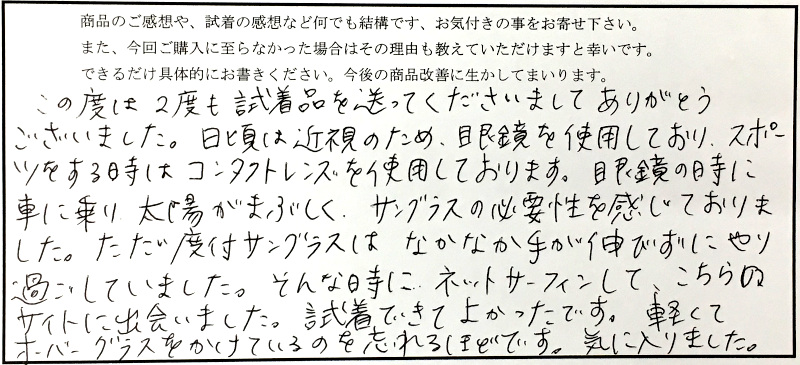 商品のご感想や、試着の感想など何でも結構です、お気付きの事をお寄せ下さい。
また、今回ご購入に至らなかった場合はその理由も教えていただけますと幸いです。
できるだけ具体的にお書きください。今後の商品改善に生かしてまいります。
この度は2度も試着品を送ってくださいましてありがとう
ございました。日頃は近視のため、眼鏡を使用しており、スポー
ツをする時はコンタクトレンズを使用しております。眼鏡の時に
車に乗り、太陽がまぶしく、サングラスの必要性を感じておりま
した。ただ度付サングラスは なかなか手が伸びずにやり
過ごしていました。そんな時に、ネットサーフィンして、こちらの
サイトに出会いました。試着できてよかったです。軽くて
オーバーグラスをかけているのを忘れるほどです。気に入りました。